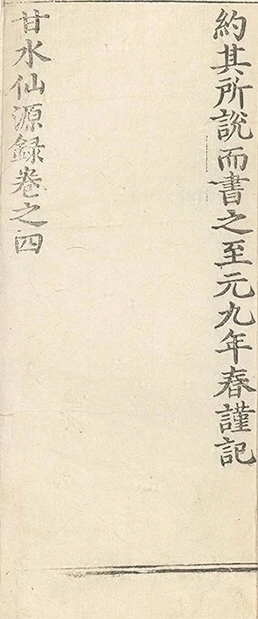 約其所説而書之至元九年春謹記
甘水仙源録卷之四